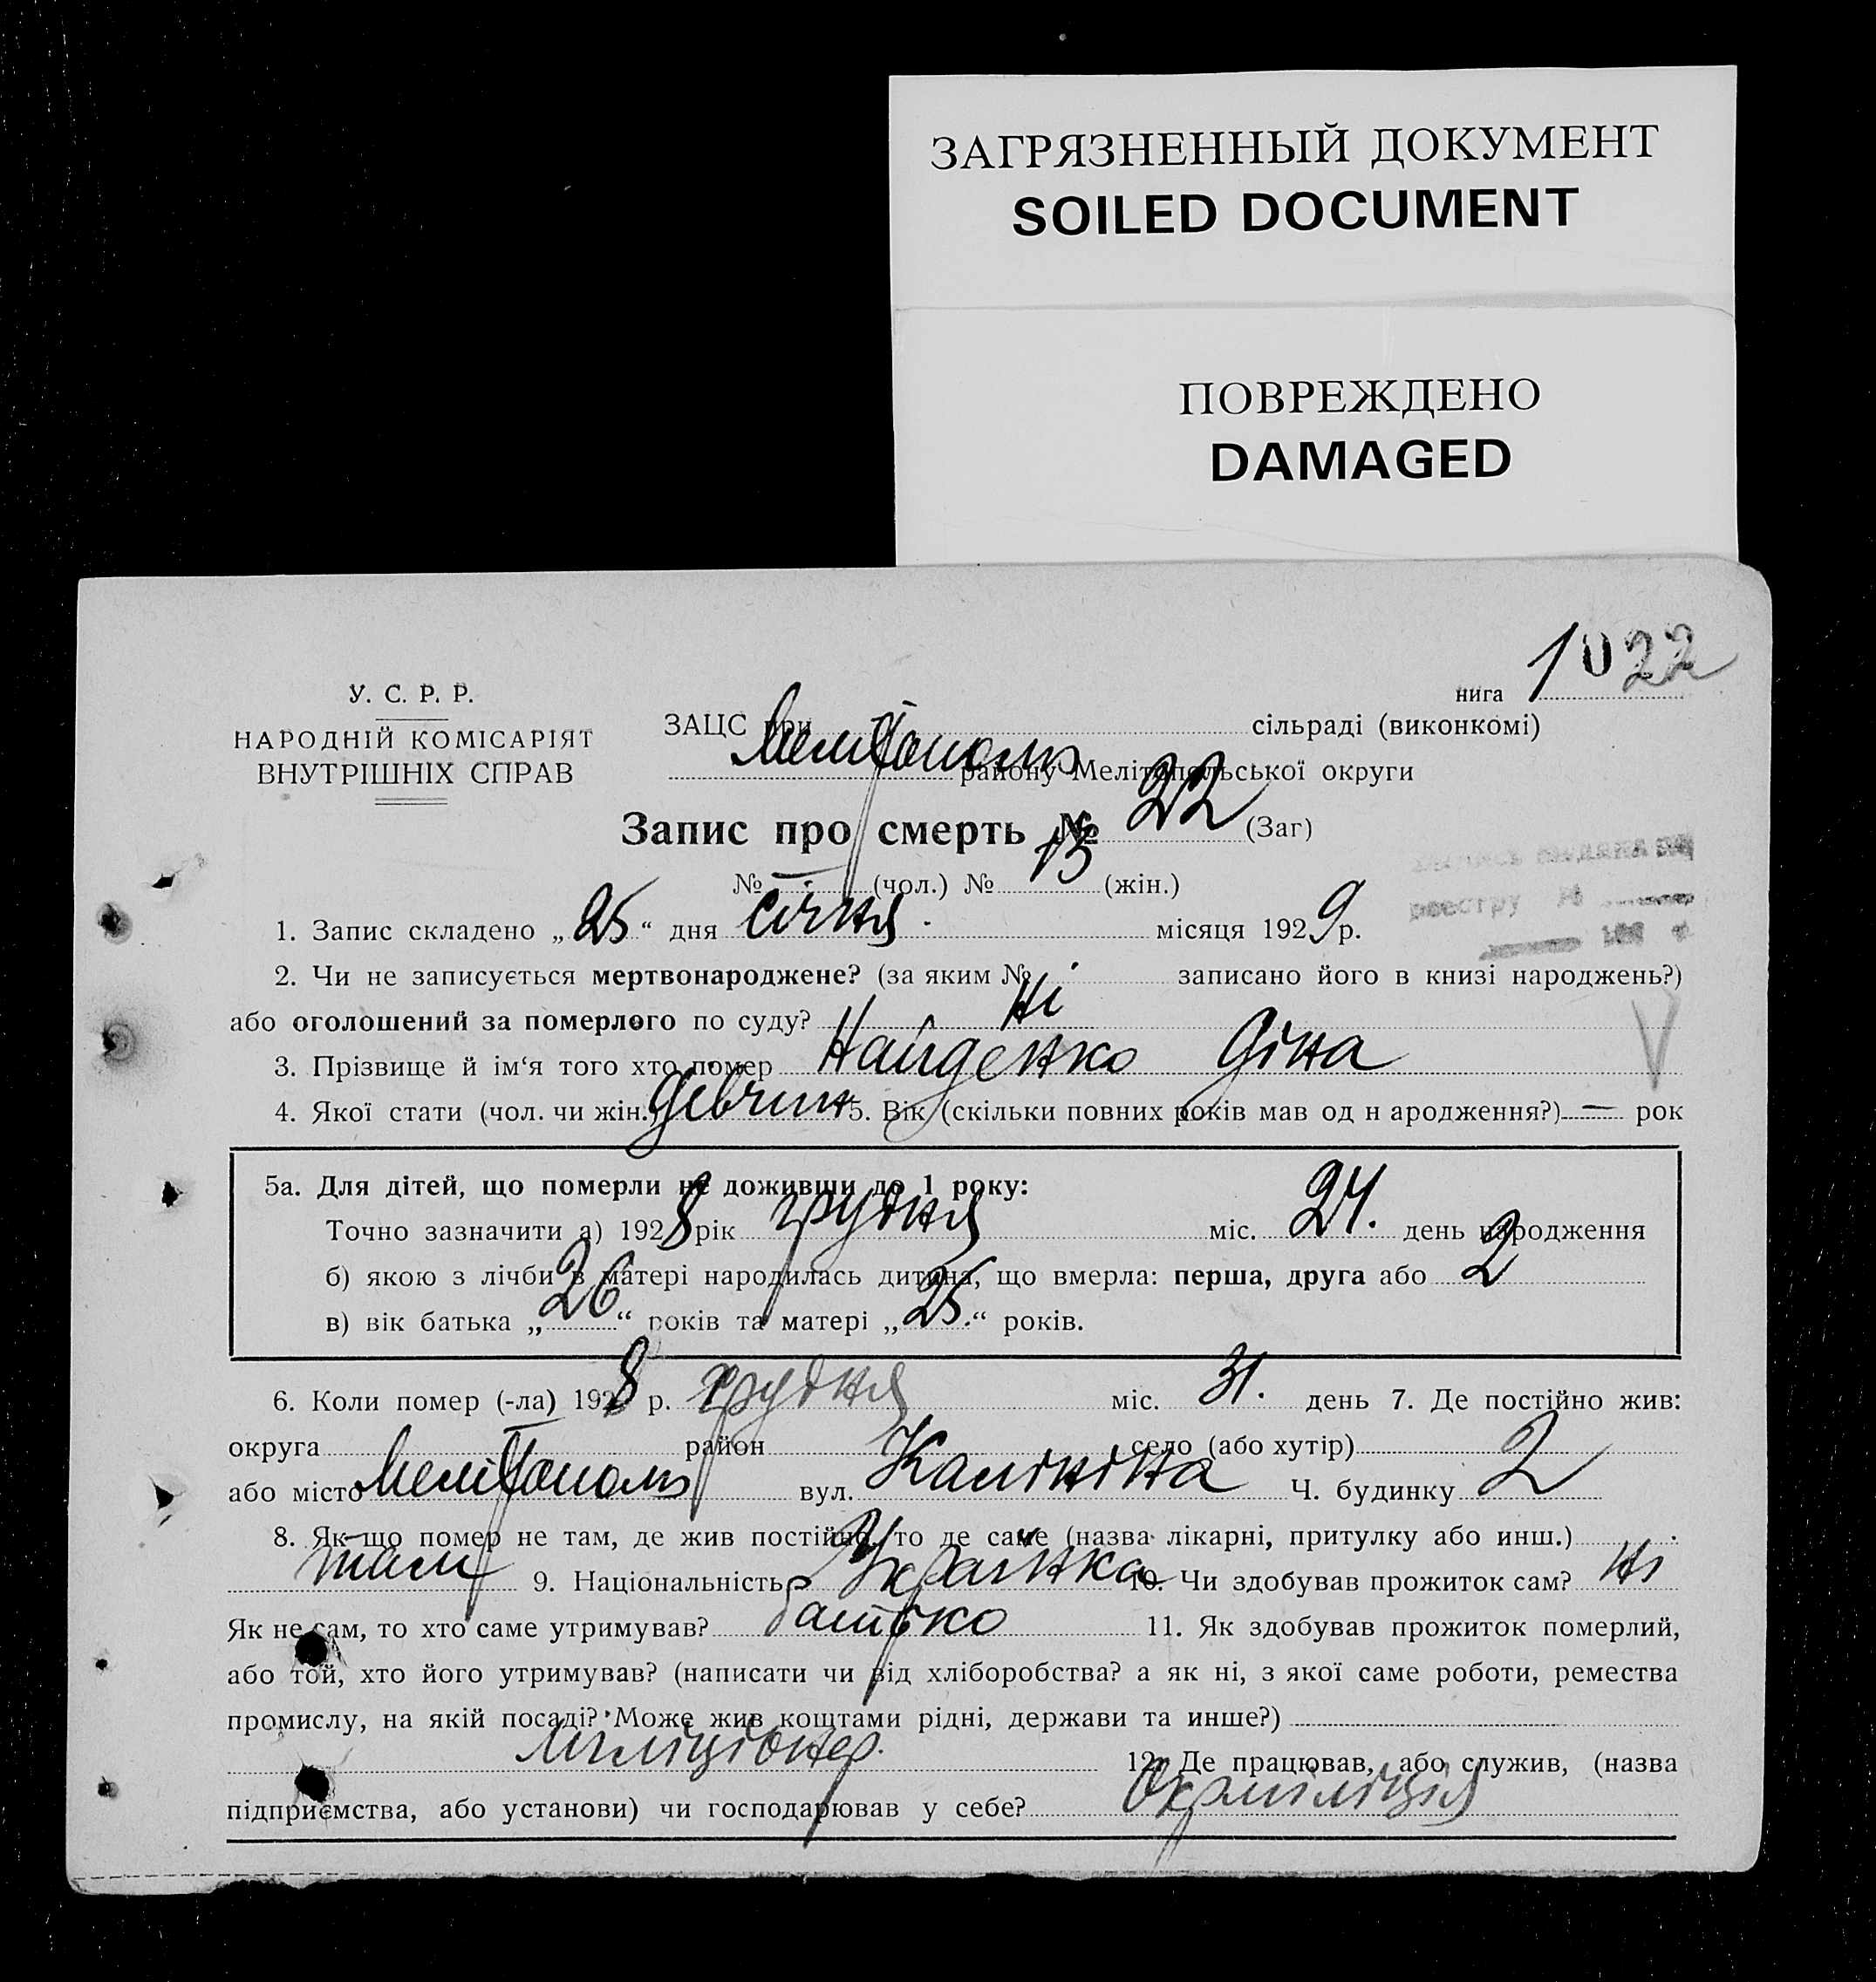 ЗАГРЯЗНЕННЫЙ ДОКУМЕНТ
SOILED DOCUMENT
ПОВРЕЖДЕНО
DAMAGED
1022
нига
У. С. Р. Р.
НАРОДНІЙ КОМІСАРІЯТ
ВНУТРІШНІХ СПРАВ
ЗАЦС при сільраді (виконкомі)
Мелітополь району Мелітопольської округи
Запис про смерть № 22 (Заг)
№ — (чол.) № 13 (жін.)
реестру №
1. Запис складено „25“ дня січня місяця 1929 р.
2. Чи не записується мертвонароджене? (за яким № записано його в книзі народжень?)
або оголошений за померлого по суду? ні
3. Прізвище й ім‘я того хто помер Найденко Діна
4. Якої стати (чол. чи жін.) девчин 5. Вік (скільки повних років мав од н ародження?) — рок
5а. Для дітей, що померли не доживши до 1 року:
Точно зазначити а) 1928 рік грудня міс. 24. день народження
б) якою з лічби в матері народилась дитина, що вмерла: перша, друга або 2
в) вік батька „26“ років та матері „25.“ років.
6. Коли помер (-ла) 1928 р. грудня міс. 31. день 7. Де постійно жив:
округа район село (або хутір)
або місто Мелітополь вул. Калініна Ч. будинку 2
8. Як-що помер не там, де жив постійно, то де саме (назва лікарні, притулку або инш.)
там 9. Національність Українка 10. Чи здобував прожиток сам? ні
Як не сам, то хто саме утримував? батько 11. Як здобував прожиток померлий,
або той, хто його утримував? (написати чи від хліборобства? а як ні, з якої саме роботи, ремества
промислу, на якій посаді? Може жив коштами рідні, держави та инше?)
Міліціонер. 12. Де працював, або служив, (назва
підприємства, або установи) чи господарював у себе? Окрміліція